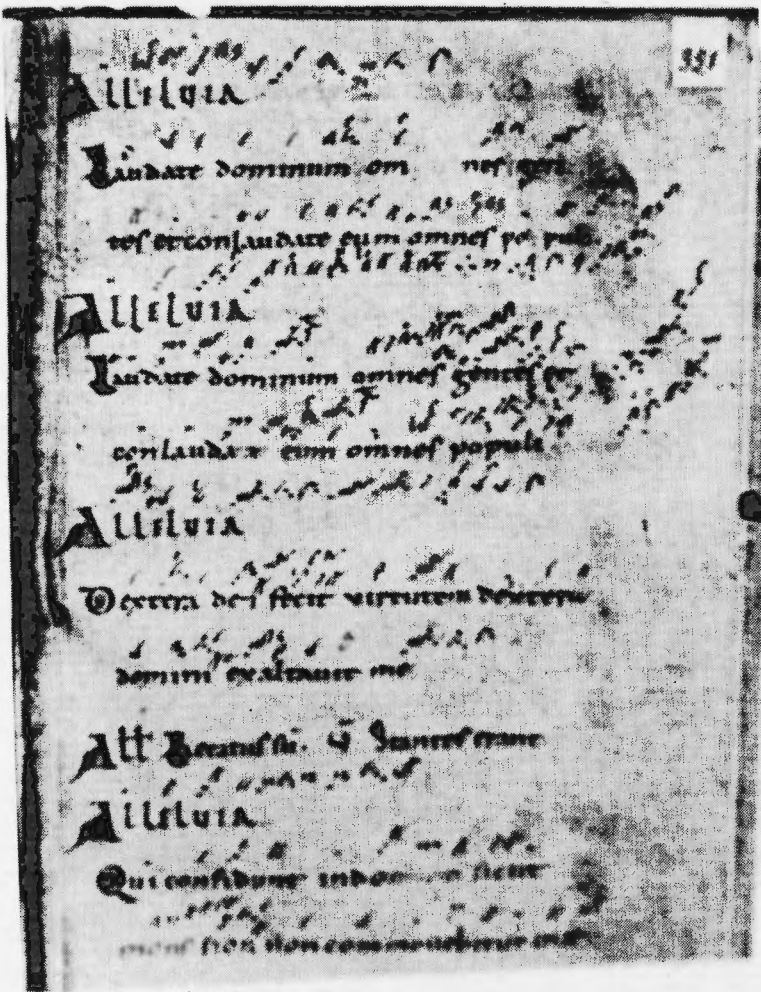 331
Alleluia
Laudate dominum om nes gen
tes et conlaudate eum omnes populi
Alleluia
Laudate dominum omnes gentes et
conlaudate eum omnes populi
Alleluia
Dextera dei fecit virtutem dextera
domini exaltavit me
All Laetatus su. V Stantes erant
Alleluia
Qui confidunt in do sicut
mons sion non commovebitur